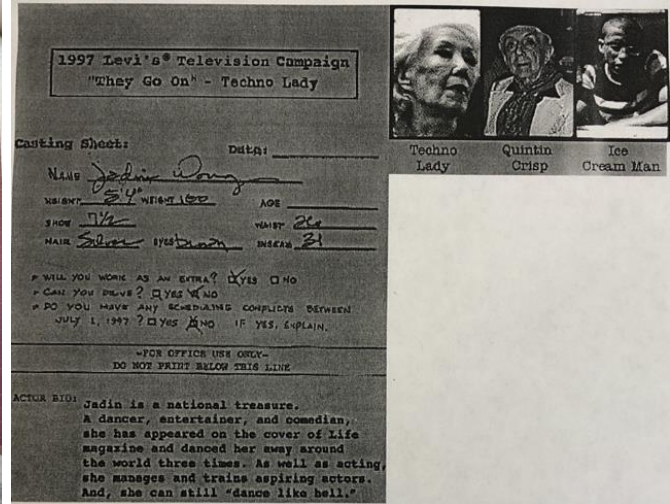 1997 Levi's® Television Campaign
"They Go On" - Techno Lady
Casting Sheet:
Date:
NAME Jadin Wong
HEIGHT 5'4" WEIGHT 100
AGE
SHOE 7½
WAIST 26
HAIR Silver EYES brown
INSEAM 31
▸ WILL YOU WORK AS AN EXTRA? ☒ YES ☐ NO
▸ CAN YOU DRIVE? ☐ YES ☒ NO
▸ DO YOU HAVE ANY SCHEDULING CONFLICTS BETWEEN
JULY 1, 1997? ☐ YES ☒ NO IF YES, EXPLAIN.
-FOR OFFICE USE ONLY-
DO NOT PRINT BELOW THIS LINE
ACTOR BIO:
Jadin is a national treasure.
A dancer, entertainer, and comedian,
she has appeared on the cover of Life
magazine and danced her away around
the world three times. As well as acting,
she manages and trains aspiring actors.
And, she can still "dance like hell."
Techno
Lady
Quintin
Crisp
Ice
Cream Man